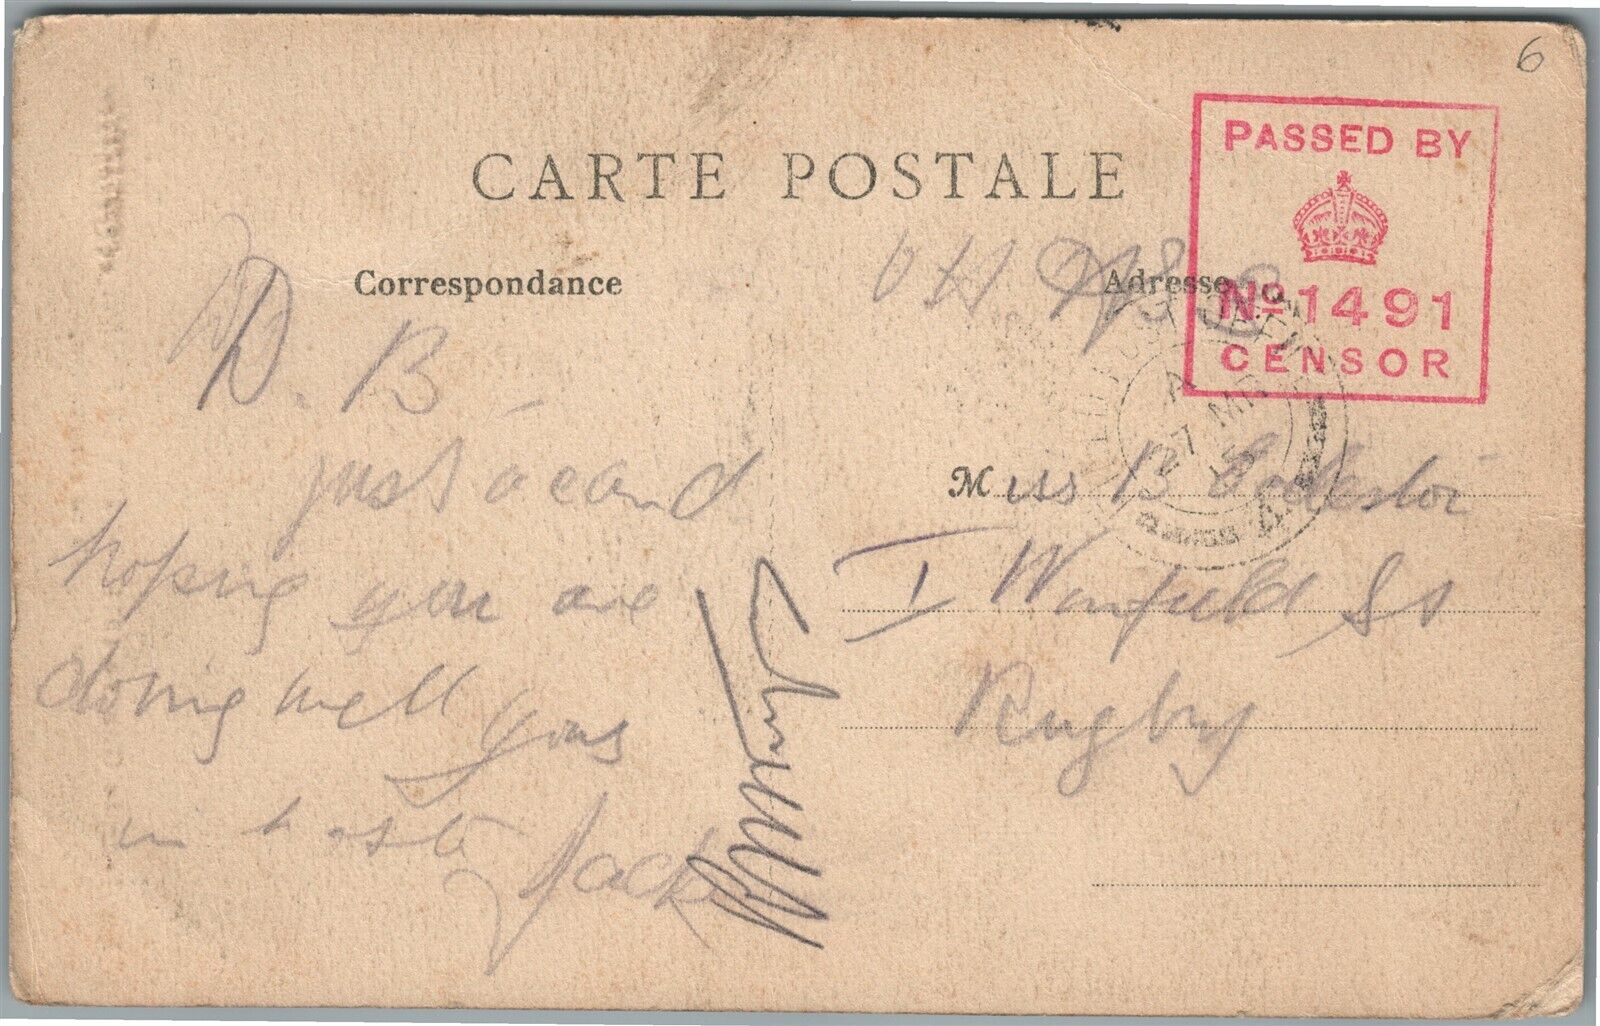 6
CARTE POSTALE
PASSED BY
Nº 1491
CENSOR
Correspondance
Adresse
D. B -
just a card
hoping you are
doing well yours
in haste Jack
Miss B
1 Winfield St
Rugby
A
27 MR 15